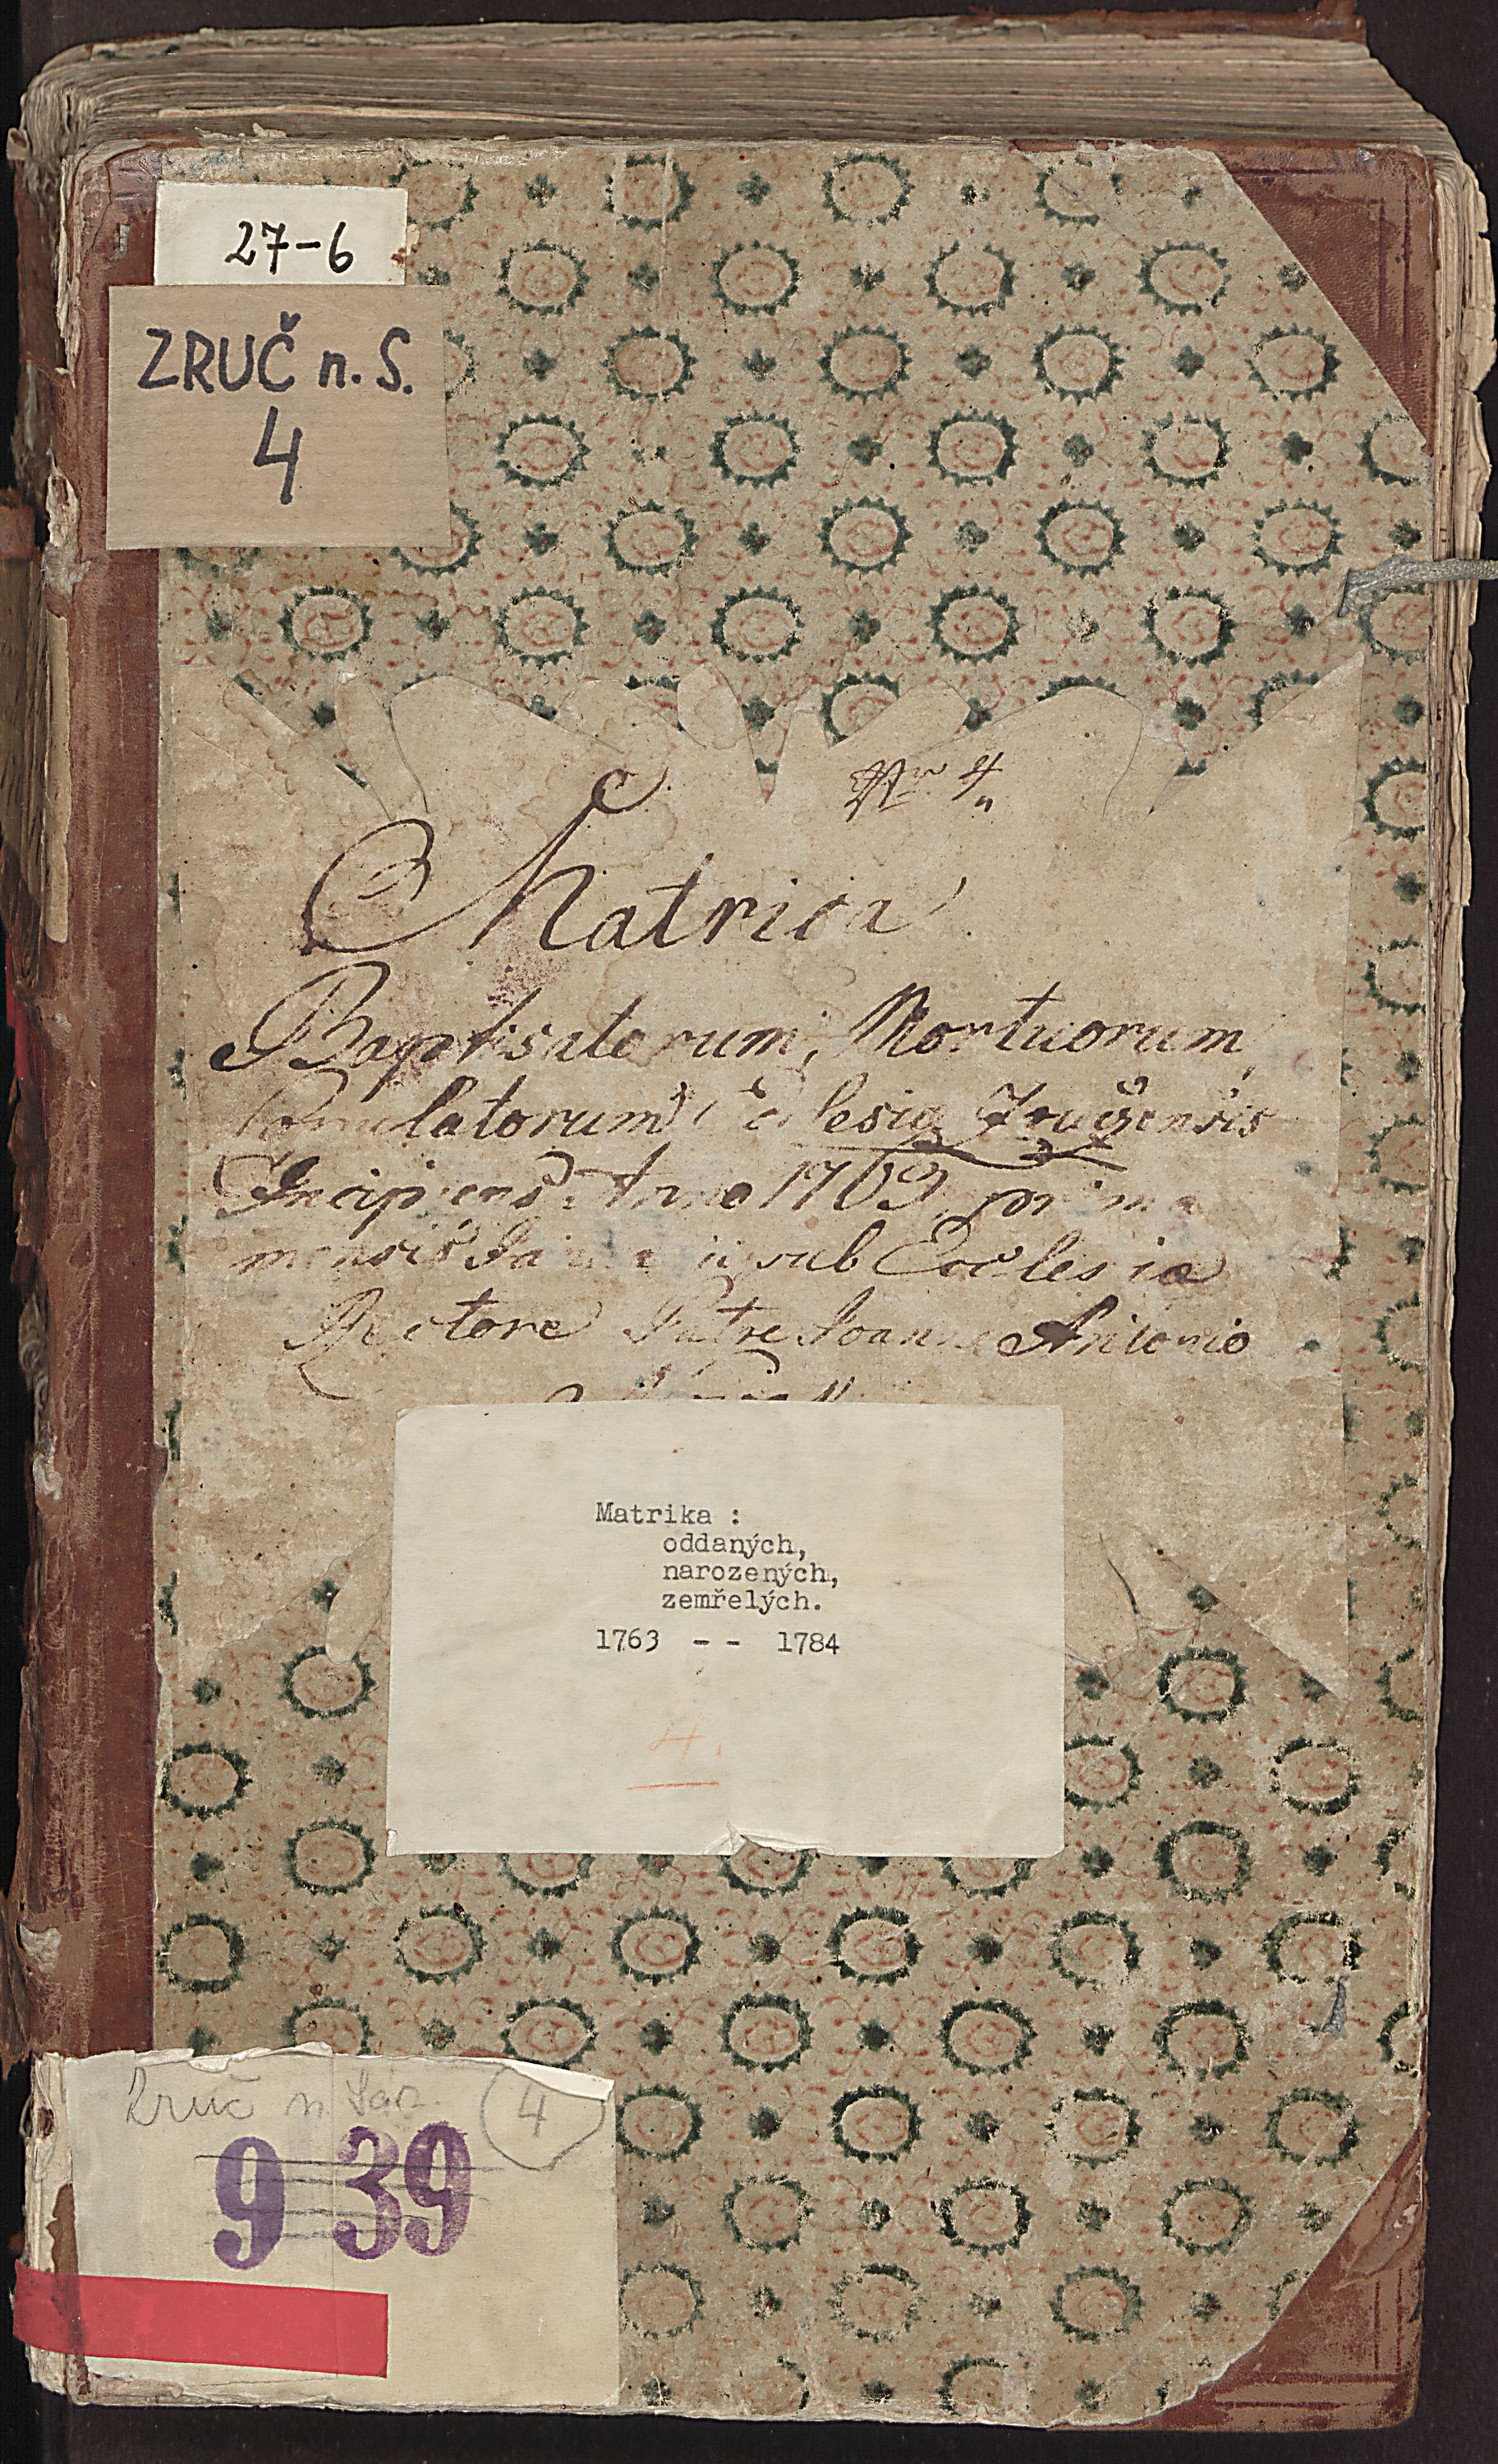 27-6
ZRUČ n. S.
4
Nro 4
Matrica
Baptisatorum, Mortuorum,
Copulatorum Ecclesiæ Zručensis
Incipiens Anno 1763 prima
mensis Januarii sub Ecclesiæ
Rectore Patre Joanne Antonio
Matrika :
oddaných,
narozených,
zemřelých.
1763 -- 1784
4.
Zruč n. Sáz. 4
939